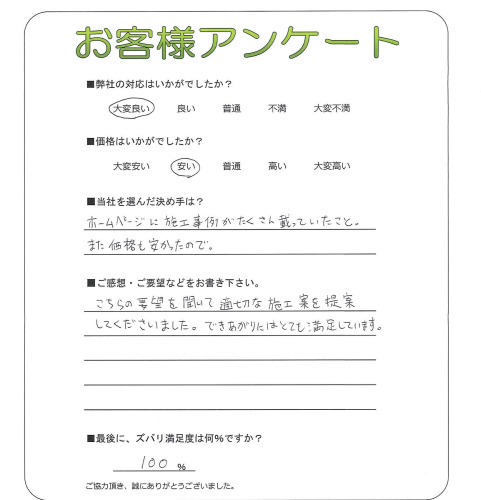 お客様アンケート
■弊社の対応はいかがでしたか？
大変良い 良い 普通 不満 大変不満
■価格はいかがでしたか？
大変安い 安い 普通 高い 大変高い
■当社を選んだ決め手は？
ホームページに施工事例がたくさん載っていたこと。
また価格も安かったので。
■ご感想・ご要望などをお書き下さい。
こちらの要望を聞いて適切な施工案を提案
してくださいました。できあがりにはとても満足しています。
■最後に、ズバリ満足度は何%ですか？
100 %
ご協力頂き、誠にありがとうございました。